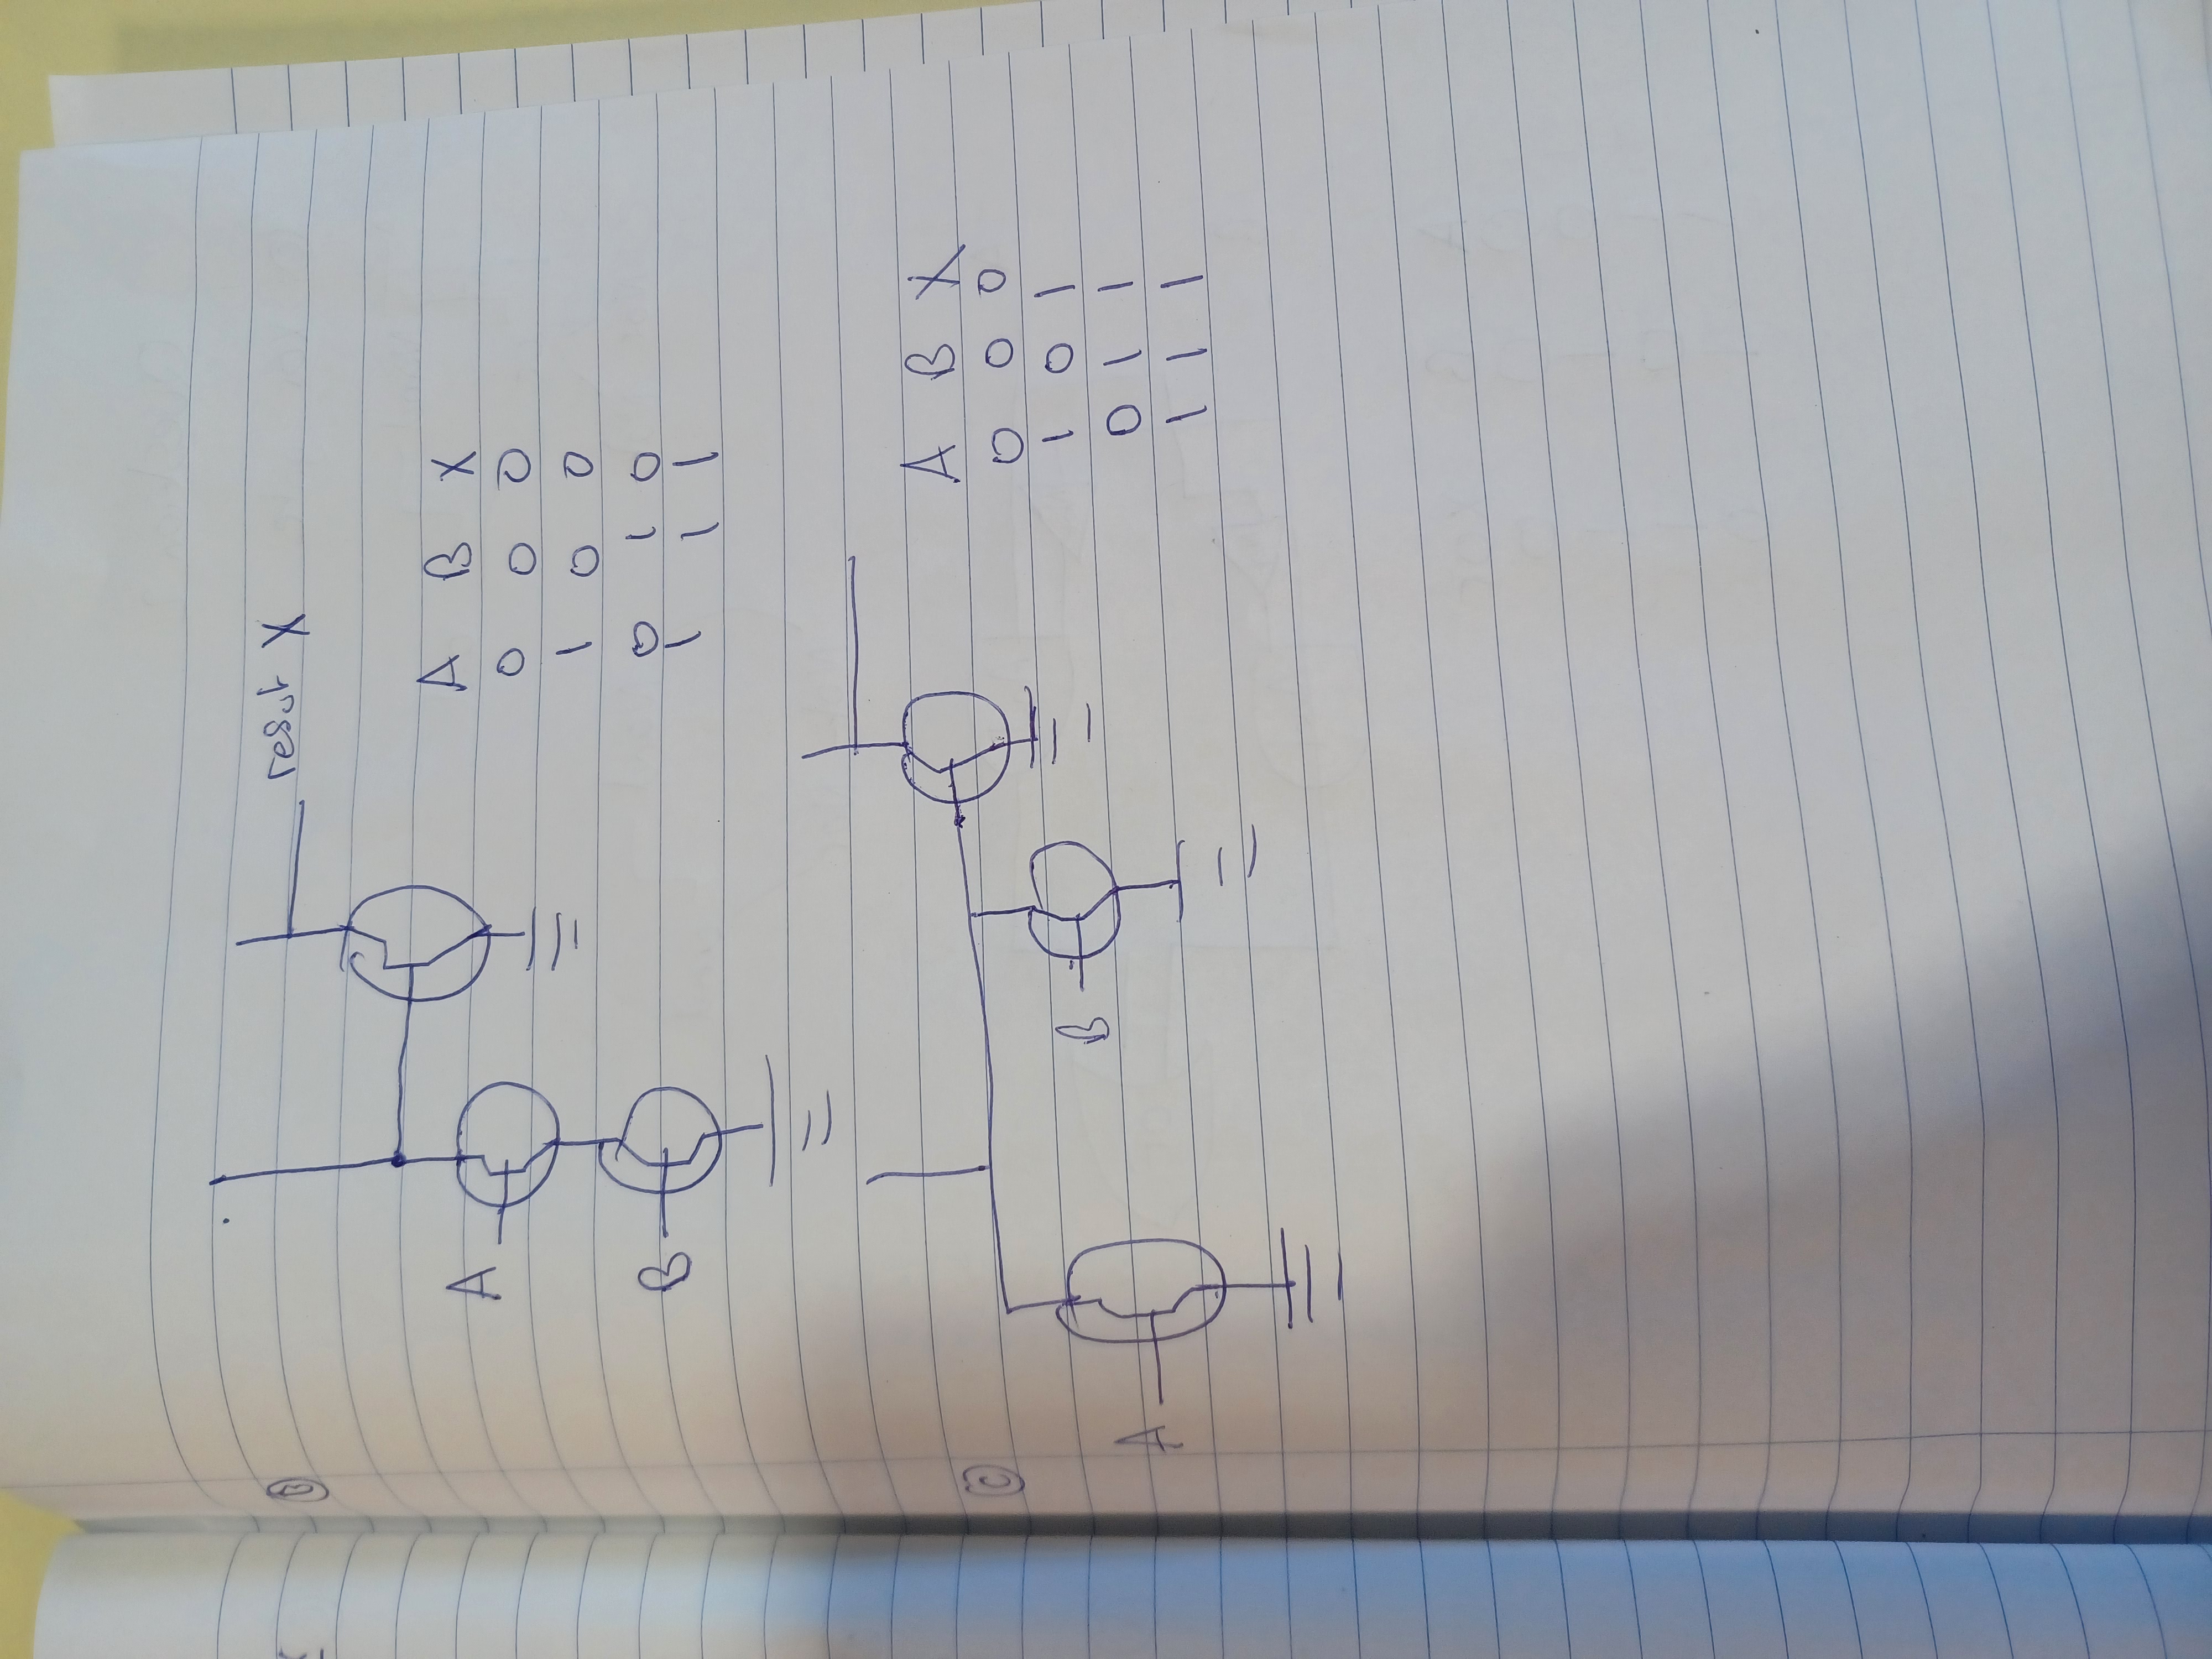 B
resut X
A
B
A B X
0 0 0
1 0 0
0 1 0
1 1 1
C
A
B
A B X
0 0 0
1 0 1
0 1 1
1 1 1